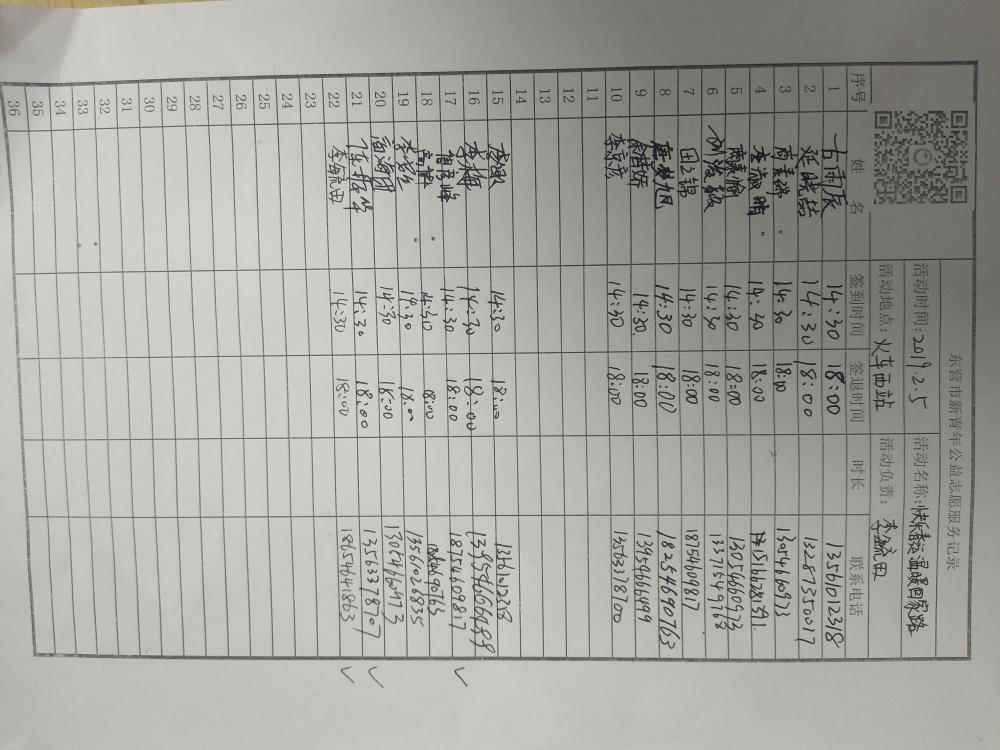 东营市新青年公益志愿服务记录
活动时间：2019.2.5 活动名称：快乐春运温暖回家路
活动地点：火车西站 活动负责：李毓田
序号 姓名 签到时间 签退时间 时长 联系电话
1 古雨辰 14:30 18:00 13561012318
2 延晓喆 14:30 18:00 13287350017
3 商素瑞 14:30 18:00 13054660973
4 李淑晴 14:30 18:00 15166281591
5 14:30 18:00 13056660973
6 刘浚毅 14:30 18:00 13371549768
7 田立锦 14:30 18:00 18754609817
8 14:30 18:00 18254690763
9 14:30 18:00 13954666499
10 李京彦 14:30 18:00 13563378700
11
12
13
14
15 14:30 18:00 13561012318
16 李梅 14:30 18:00 13954606499
17 周彦峰 14:30 18:00 18754609817
18 14:30 18:00
19 14:30 18:00 13561028835
20 14:30 18:00
21 14:30 18:00 13563378707
22 李毓田 14:30 18:00 18654641863
23
24
25
26
27
28
29
30
31
32
33
34
35
36